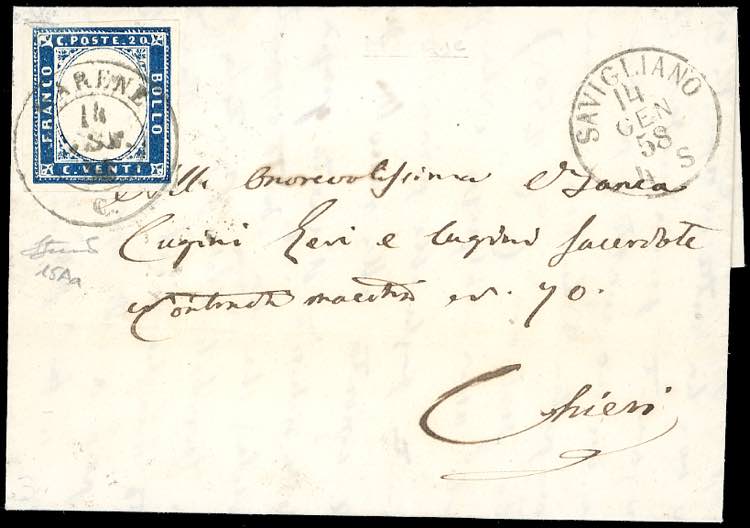 C. POSTE. 20
FRANCO
BOLLO
C. VENTI
ARENE
14
GEN.
58
C.
SAVIGLIANO
14
GEN
58
S
Alla Onorevolissima
Cugini Levi e Cugini Sacerdote
Contrada maestra N. 70.
Chieri
15Aa